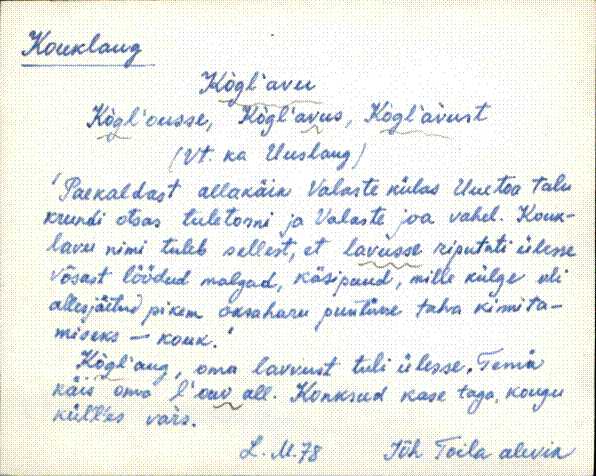 Kouklaug
Kògl'avu
Kògl'ousse, Kògl'avus, Kògl'àvust
(Vt. ka Uuslaug)
'Paekaldast allakäik Valaste külas Uuetoa talu
krundi otsas tuletorni ja Valaste joa vahel. Kouk-
lavu nimi tuleb sellest, et lavusse riputati ülesse
võsast löödud malgad, käsipuud, mille külge oli
allesjäetud pikem oksaharu puntisse taha kinnita-
miseks – kouk.'
Kògl'aug, oma lavvust tuli ülesse. Temä
käis oma l'ouo all. Konksud kase taga, kougu
küll'es vars.
L. M. 78 Jõh Toila alevik